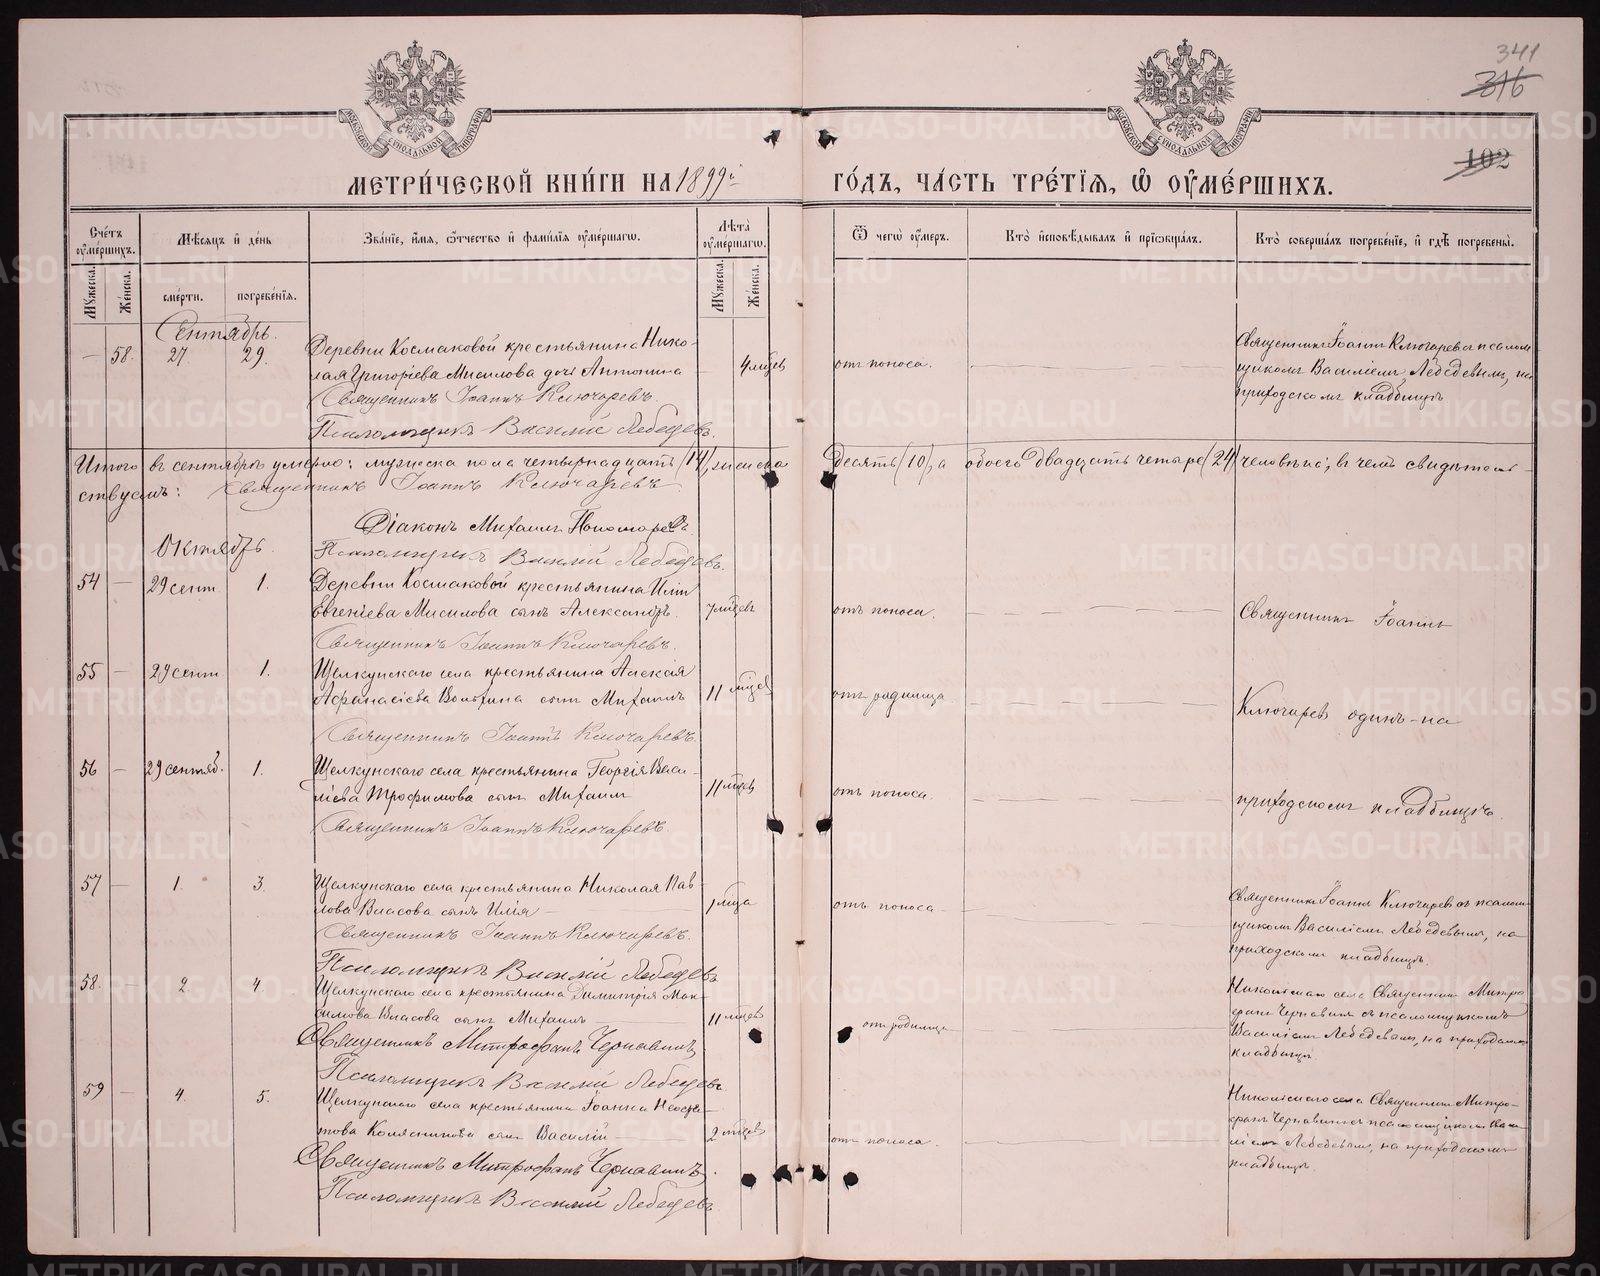 341
316
102
МЕТРИЧЕСКОЙ КНИГИ НА 1899й ГОДЪ, ЧАСТЬ ТРЕТІЯ, Ѿ ОУМЕРШИХЪ.
Счетъ оумершихъ.
Мѣсяцъ и день
Званіе, имя, отчество и фамилія оумершагѡ.
Лѣта оумершагѡ.
Ѿ чегѡ оумеръ.
Кто исповѣдывалъ и пріобщалъ.
Кто совершалъ погребеніе, и гдѣ погребены.
Мужеска.
Женска.
смерти.
погребенія.
Мужеска.
Женска.
Сентябрь.
— 58. 27. 29. Деревни Космаковой крестьянина Нико-
лая Григоріева Мисилова дочь Антонина — 4 мѣсяцев отъ поноса.
Священникъ Іоаннъ Ключаревъ.
Псаломщикъ Василій Лебедевъ.
Священникъ Іоаннъ Ключаревъ псалом-
щикомъ Василіемъ Лебедевымъ, на
приходскомъ кладбищѣ
Итого въ сентябрѣ умерло: мужеска пола четырнадцать (14), женска десять (10), а обоего двадцать четыре (24) человѣка; въ чемъ свидѣтель-
ствуемъ: Священникъ Іоаннъ Ключаревъ.
Діаконъ Михаилъ Пономаревъ.
Псаломщикъ Василій Лебедевъ.
Октябрь.
54 — 29 сент. 1. Деревни Космаковой крестьянина Иліи
Евгеніева Мисилова сынъ Александръ. 7 мѣсяцев отъ поноса.
Священникъ Іоаннъ Ключаревъ.
Священникъ Іоаннъ
55 — 29 сент. 1. Щелкунскаго села крестьянина Алексія
Афанасіева сынъ Михаилъ 11 мѣсяцев отъ родимца
Священникъ Іоаннъ Ключаревъ.
Ключаревъ одинъ — на
56 — 29 сентяб. 1. Щелкунскаго села крестьянина Георгія Васи-
ліева Трофимова сынъ Михаилъ 11 мѣсяцев отъ поноса.
Священникъ Іоаннъ Ключаревъ.
приходскомъ кладбищѣ.
57 — 1. 3. Щелкунскаго села крестьянина Николая Пав-
лова Власова сынъ Илія — 1 мѣсяца отъ поноса
Священникъ Іоаннъ Ключаревъ.
Псаломщикъ Василій Лебедевъ
Священникъ Іоаннъ Ключаревъ съ псалом-
щикомъ Василіемъ Лебедевымъ, на
приходскомъ кладбищѣ.
58. — 2. 4. Щелкунскаго села крестьянина Димитрія Мак-
симова Власова сынъ Михаилъ — 11 мѣсяцев отъ родимца
Священникъ Митрофанъ Чернавинъ.
Псаломщикъ Василій Лебедевъ
Никольскаго села Священникъ Митро-
фанъ Чернавинъ съ псаломщикомъ
Василіемъ Лебедевымъ, на приходскомъ
кладбищѣ
59 — 4. 5. Щелкунскаго села крестьянина Іоанна
Колясникова сынъ Василій — 2 мѣсяцев отъ поноса.
Священникъ Митрофанъ Чернавинъ.
Псаломщикъ Василій Лебедевъ
Никольскаго села Священникъ Митро-
фанъ Чернавинъ съ псаломщикомъ Васи-
ліемъ Лебедевымъ, на приходскомъ
кладбищѣ.
METRIKI.GASO-URAL.RU